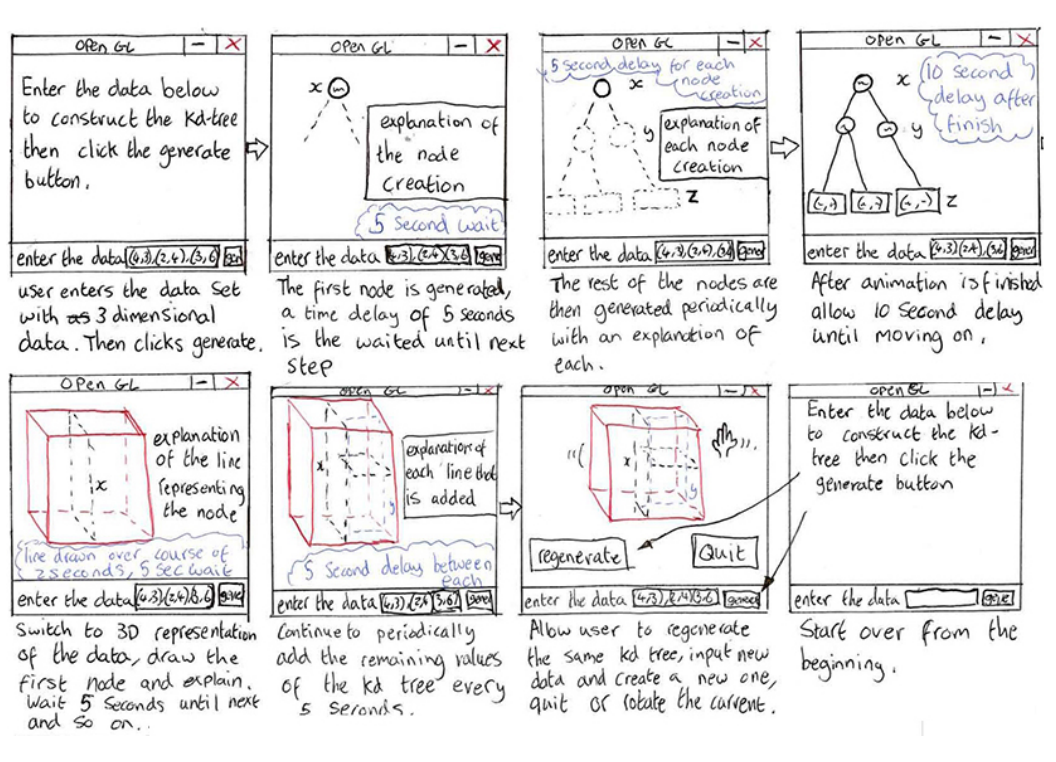 Open GL
Enter the data below
to construct the Kd-tree
then click the generate
button.
enter the data (4,3),(2,4),(3,6) gen
user enters the data set
with as 3 dimensional
data. Then clicks generate.
Open GL
x
explanation of
the node
creation
5 second wait
enter the data (4,3),(2,4)(3,6) gene
The first node is generated,
a time delay of 5 seconds
is the waited until next
step
Open GL
5 second delay for each
node
creation
x
y
explanation of
each node
creation
z
enter the data (4,3),(2,4),(3,6) gene
The rest of the nodes are
then generated periodically
with an explanation of
each.
Open GL
x
10 second
delay after
finish
y
(-,-) (-,-) (-,-) z
enter the data (4,3)(2,4),(3,6 gene
After animation is finished
allow 10 second delay
until moving on.
Open GL
explanation
of the line
representing
the node
x
line drawn over course of
2 seconds, 5 sec wait
enter the data (4,3),(2,4)(3,6) gene
Switch to 3D representation
of the data, draw the
first node and explain.
Wait 5 seconds until next
and so on..
Open GL
x
y
explanation of
each line that
is added
5 second delay between
each
enter the data (4,3),(2,4 (3,6) gene
Continue to periodically
add the remaining values
of the kd tree every
5 seconds.
Open GL
x
y
regenerate
Quit
enter the data (4,3),(2,4)(3,6) gene
Allow user to regenerate
the same kd tree, input new
data and create a new one,
quit or rotate the current.
Open GL
Enter the data below
to construct the Kd-
tree then click the
generate button
enter the data gene
Start over from the
beginning.